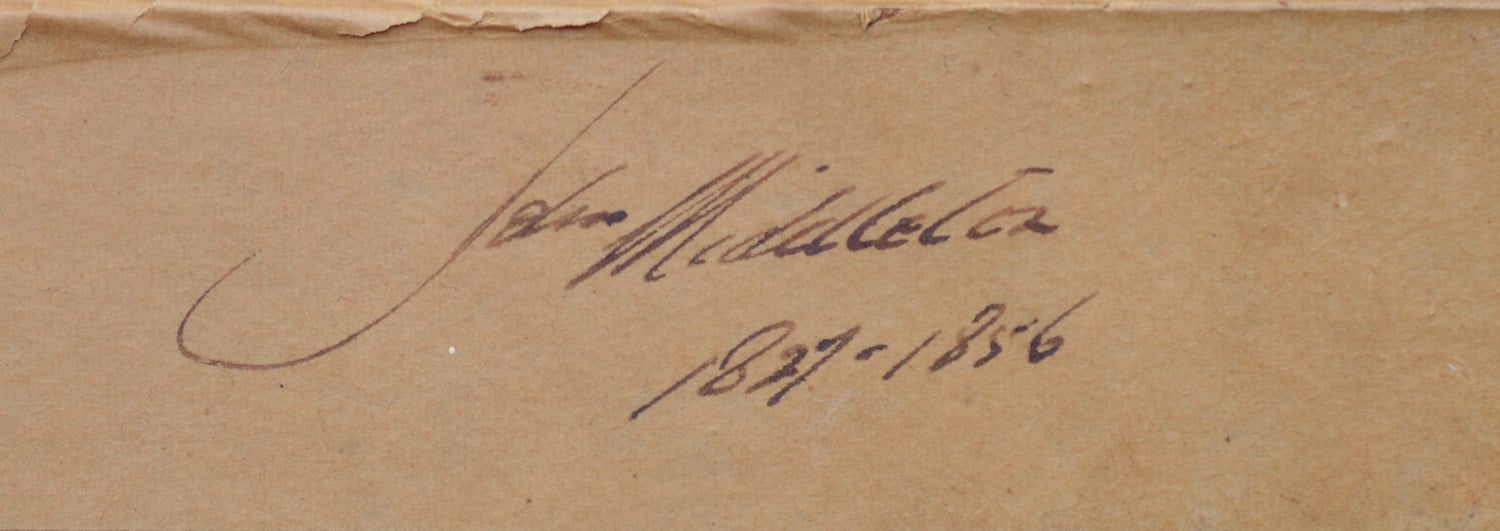 John Middleton
1827-1856